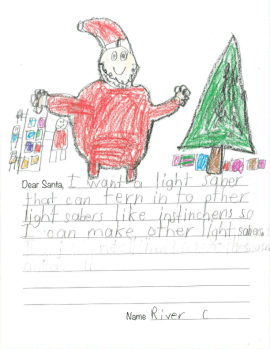 Dear Santa, I want a light saber
that can tern in to other
light sabers like instinchens so
I can make other light sabers.
Name River C